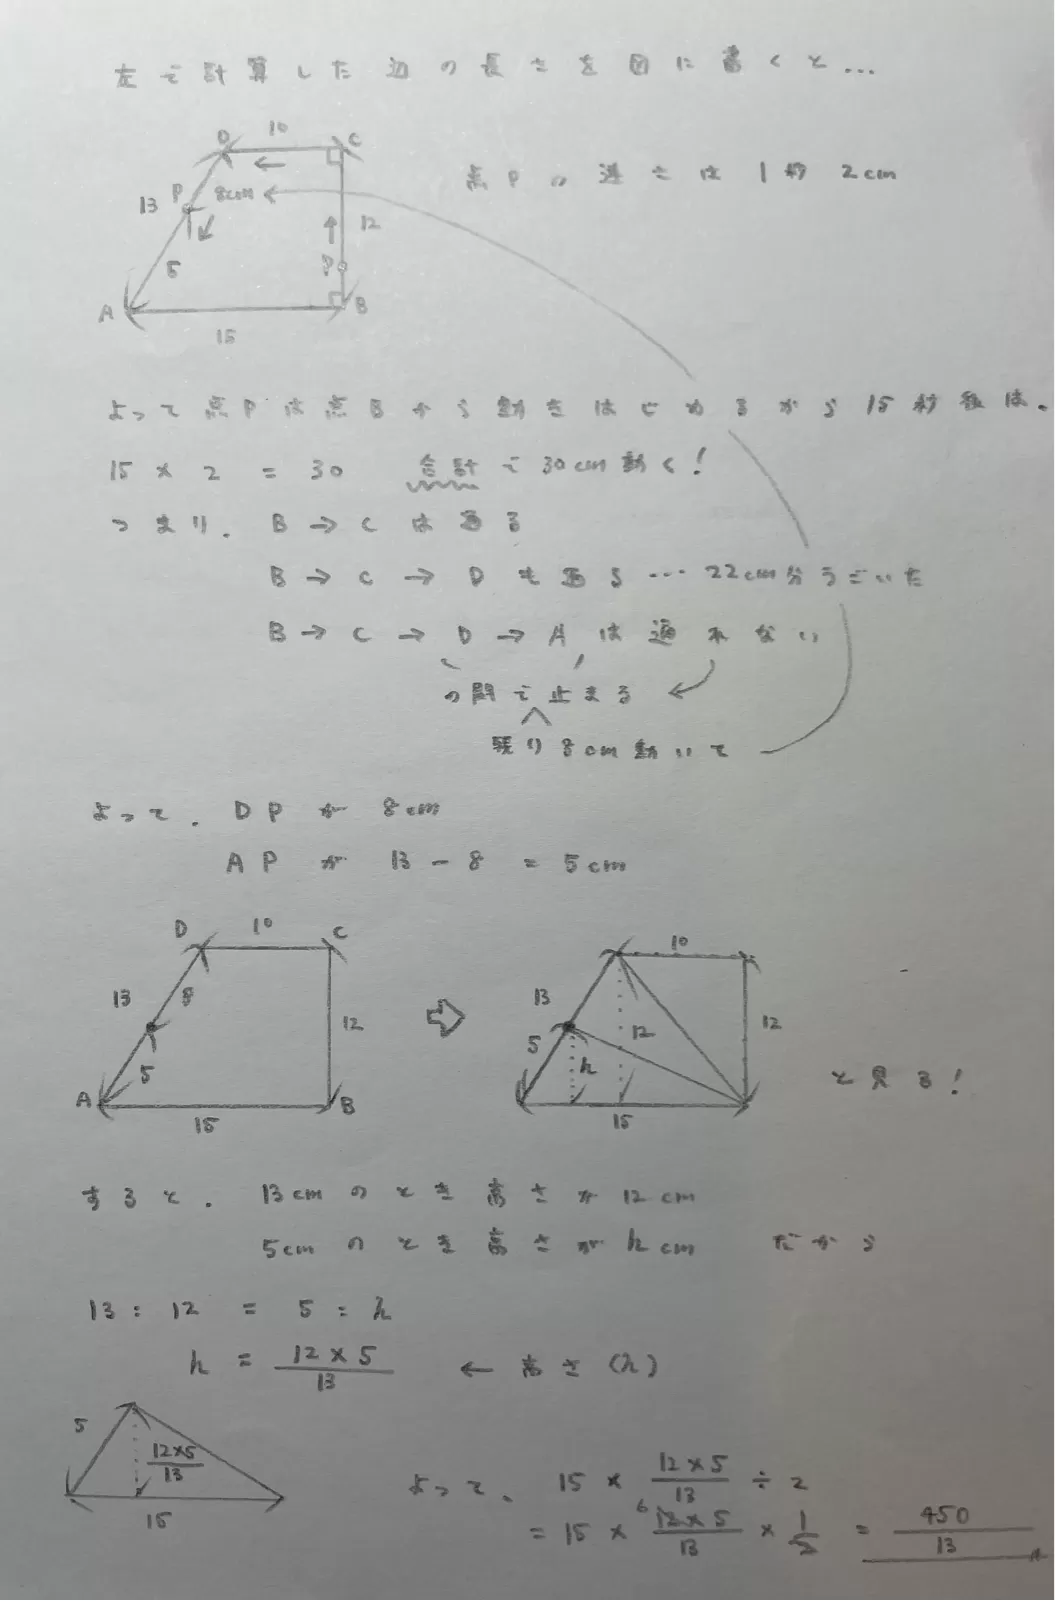 左で計算した辺の長さを図に書くと...
D 10 C
点Pの速さは1秒2cm
13 P 8cm
12
5 P
A B
15
よって点Pは点Bから動きはじめるから15秒後は、
15 × 2 = 30 合計で30cm動く!
つまり、B→Cは通る
B→C→Dも通る…22cm分うごいた
B→C→D→Aは通れない
の間で止まる
残り8cm動いて
よって、DPが8cm
APが13-8=5cm
D 10 C
13 8
12
5
A B
15
⇨
10
13
5 h 12 12
15
と見る!
すると、13cmのとき高さが12cm
5cmのとき高さがhcm だから
13:12 = 5:h
h = 12×5/13 ← 高さ(h)
5
12×5/13
15
よって、15 × 12×5/13 ÷ 2
= 15 × 6 12×5/13 × 1/2 = 450/13